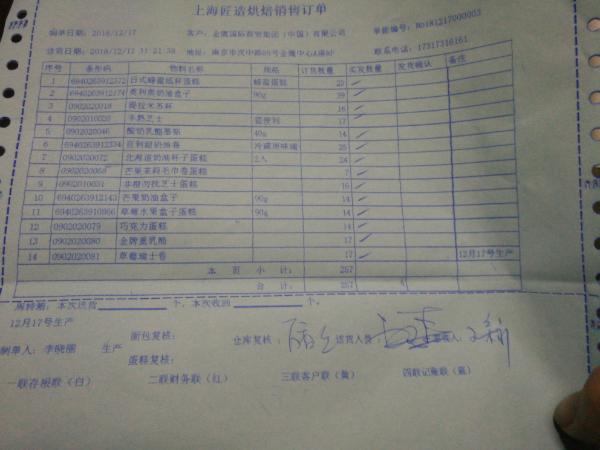 上海匠造烘焙销售订单
询单日期：2018/12/17 客户：金鹰国际商贸集团（中国）有限公司 单据编号：
送货日期：2018/12/17 11:21:38 地址：南京市汉中路89号金鹰中心A座 联系电话：17317316161
序号 条形码 物料名称 规格 订货数量 实发数量 发货确认 备注
1 6940263912372 日式蜂蜜纸杯蛋糕 蜂蜜蛋糕 20
2 6940263912174 奥利奥奶油盒子 90g 39
3 0902020018 提拉米苏杯 16
4 0902010028 半熟芝士 17
5 0902020046 酸奶乳酪慕斯 40g 14
6 6940263912334 冷藏原味 25
7 0902020072 北海道奶油杯子蛋糕 2入 24
8 0902020068 芒果茉莉毛巾卷蛋糕 7
9 0902010031 芝士蛋糕 16
10 6940263912143 芒果奶油盒子 90g 14
11 6940263910866 草莓水果盒子蛋糕 90g 14
12 0902020079 巧克力蛋糕 17
13 0902020080 金牌重乳酪 17
14 0902020081 草莓瑞士卷 17 12月17号生产
本页小计： 257
合计： 257
周转箱：本次送货 个，本次收回 个。
12月17号生产
面包复核： 仓库复核： 送货人员： 收货人：
制单人：李晓丽 生产
蛋糕复核：
一联存根联（白） 二联财务联（红） 三联客户联（黄） 四联记账联（蓝）